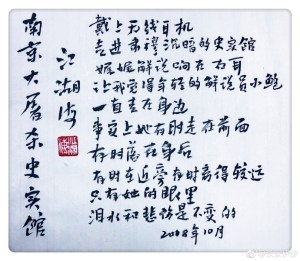 南京大屠杀史实馆
江湖海
戴上无线耳机
走进肃穆沉暗的史实馆
娓娓解说响在右耳
让我觉得年轻的解说员小鲍
一直走在身边
事实上她有时走在前面
有时落在身后
有时在近旁有时离得较远
只有她的眼里
泪水和悲伤是不变的
2018年10月